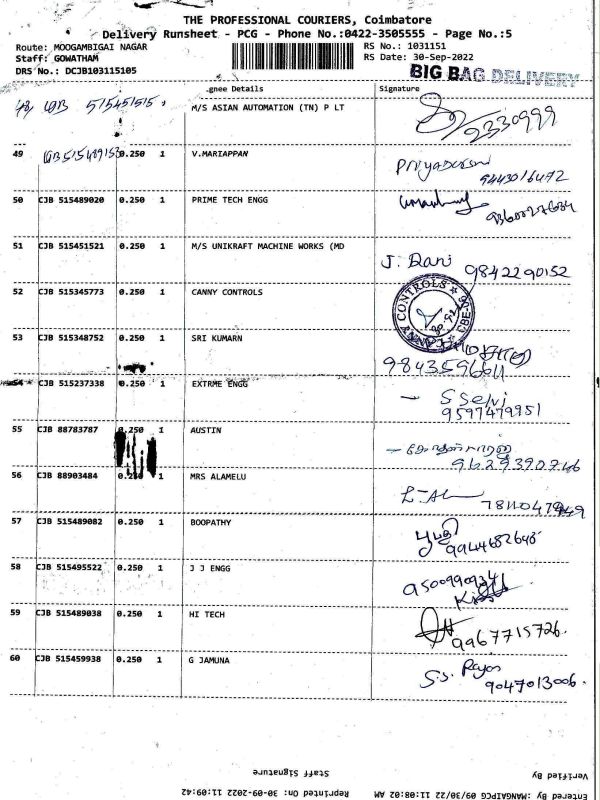 THE PROFESSIONAL COURIERS, Coimbatore
Delivery Runsheet - PCG - Phone No.:0422-3505555 - Page No.:5
Route: MOOGAMBIGAI NAGAR
Staff: GOWATHAM
DRS No.: DCJB103115105
RS No.: 1031151
RS Date: 30-Sep-2022
BIG BAG DELIVERY
gnee Details Signature
48 515451515 M/S ASIAN AUTOMATION (TN) P LT 2330999
49 515489153 0.250 1 V.MARIAPPAN
9443016472
50 CJB 515489020 0.250 1 PRIME TECH ENGG
51 CJB 515451521 0.250 1 M/S UNIKRAFT MACHINE WORKS (MD J. Rani 9842290152
52 CJB 515345773 0.250 1 CANNY CONTROLS CANNY CONTROLS CBE-6
53 CJB 515348752 0.250 1 SRI KUMARN
54 CJB 515237338 0.250 1 EXTRME ENGG - S Selvi
9597479951
55 CJB 88783787 0.250 1 AUSTIN
56 CJB 88903484 MRS ALAMELU
57 CJB 515489082 0.250 1 BOOPATHY பூபதி
58 CJB 515495522 0.250 1 J J ENGG
59 CJB 515489038 0.250 1 HI TECH 9967715726.
60 CJB 515459938 0.250 1 G JAMUNA 9047013006.
Verified By Staff Signature
Entered By :MANGAIPCG 09/30/22 11:08:02 AM Reprinted On: 30-09-2022 11:09:42